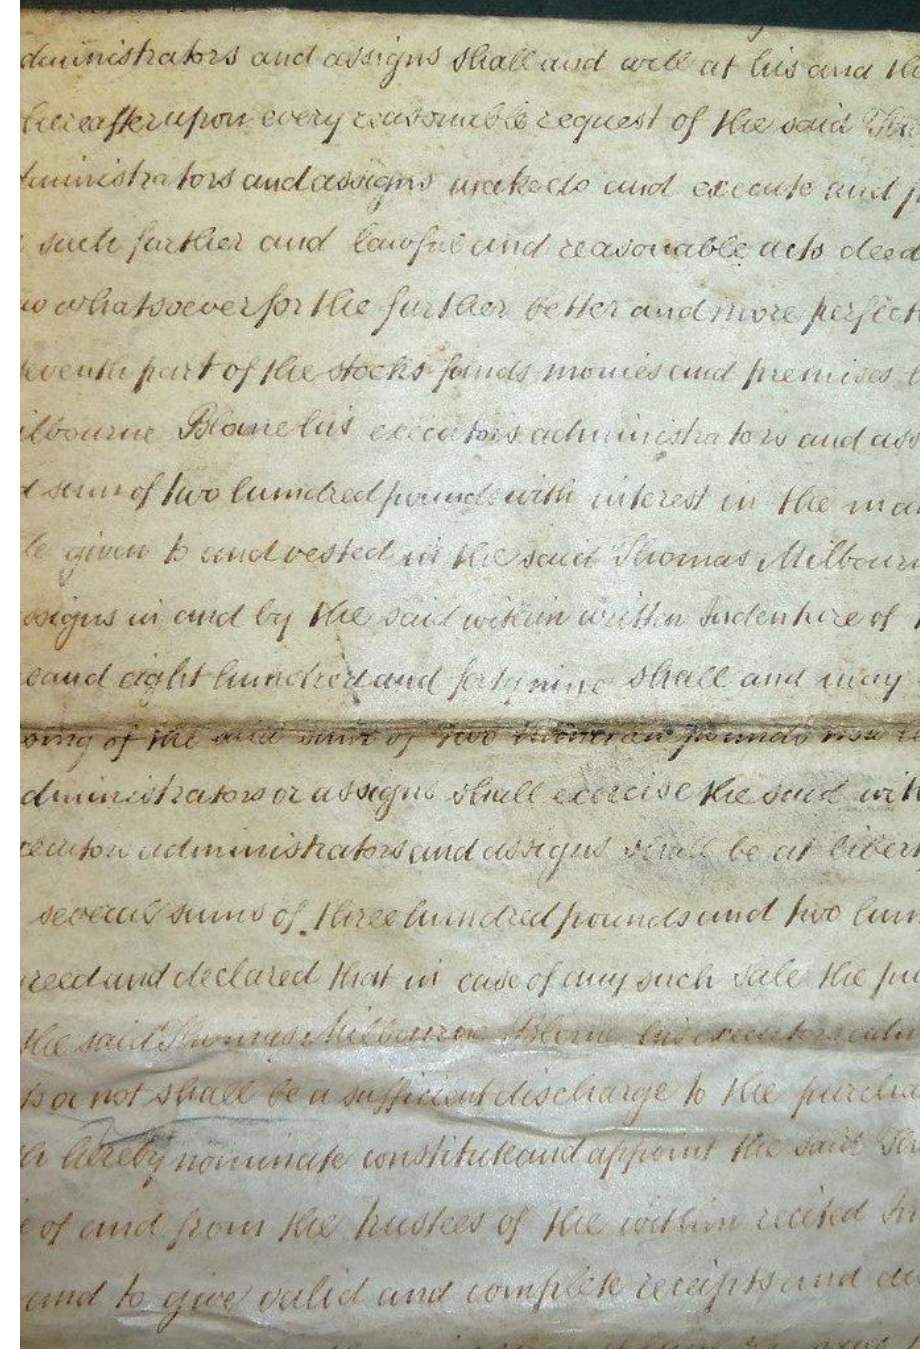 dministrators and assigns shall and will at his and
hereafter upon every reasonable request of the said
dministrators and assigns make do and execute and
such further and lawful and reasonable acts deed
whatsoever for the further better and more perfect
seventh part of the stocks funds monies and premises
ilbourne Blane his executors administrators and ass
d sum of two hundred pounds with interest in the
given to and vested in the said Thomas Milbourn
ssigns in and by the said within written Indenture of
sand eight hundred and forty nine shall and may
of the said sum of two hundred pounds now
dministrators or assigns shall exercise the said with
executors administrators and assigns shall be at libert
several sums of three hundred pounds and two hun
reed and declared that in case of any such sale the pu
the said Thomas Milbourne Blane his executors
or not shall be a sufficient discharge to the purcha
hereby nominate constitute and appoint the said
of and from the trustees of the within recited
and to give valid and complete receipts and